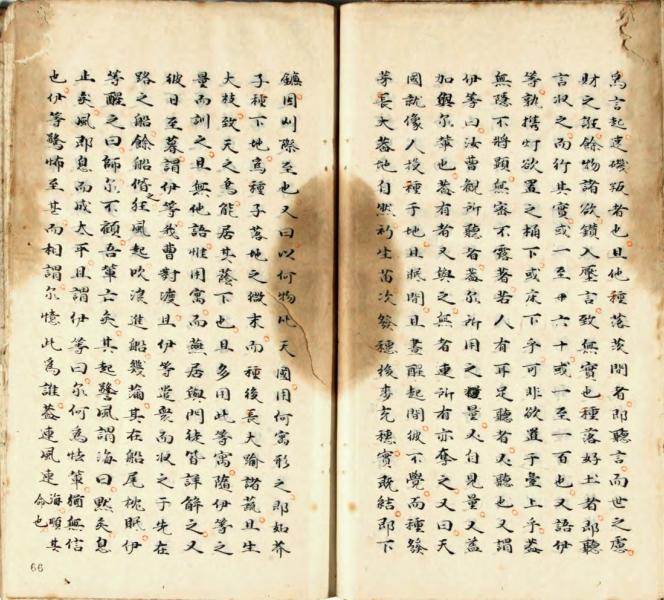 為言起逐磯叛者也且他種落茨間者即聽言而世之慮
財之誑餘物諸欲鑽入壓言致無實也種落好土者即聽
言收之而行其實或一至卅六十或一至一百也又語伊
等執攜灯欲置之桶下或床下乎可非欲置于臺上乎蓋
無隱不將顕無審不露者若人有耳足聽者乂聽也又謂
伊等曰汝曹觀所聽者蓋尔所用之量乂自見量又蓋
加與尔輩也蓋有者又與之無者連所有亦奪之又曰天
國就像人投種于地且眠間且晝醒起間彼不覺而種發
芽長大蓋地自然祈生苗次發穗後麥充穗實既結即下
鐮因刈際至也又曰以何物比天國用何寓形之即如芥
子種下地為種子落地之微末而種後長大踰諸蔬且生
大枝致天之鳥能居其蔭下也且多用此等寓隨伊等之
量而訓之且無他語惟用寓而燕居與門徒皆詳解之又
彼日至暮謂伊等我曹對渡且伊等遣衆而收之于先在
路之船餘船偕之狂風起吹浪進船幾滿其在船尾枕眠伊
等醒之曰師尔不顧吾輩亡矣其起警風謂海曰黙矣息
止矣風即息而成太平且謂伊等曰尔何為怯輩猶無信
也伊等驚怖至甚而相謂尔憶此為誰蓋連風連海順其命也
66